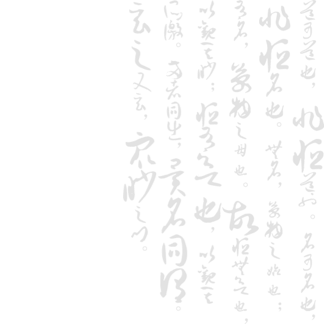 道可道也，非恒道也。名可名也，
非恒名也。無名，萬物之始也；
有名，萬物之母也。故恒無欲也，
以觀其眇；恒有欲也，以觀其
所徼。兩者同出，異名同謂。
玄之又玄，眾眇之門。